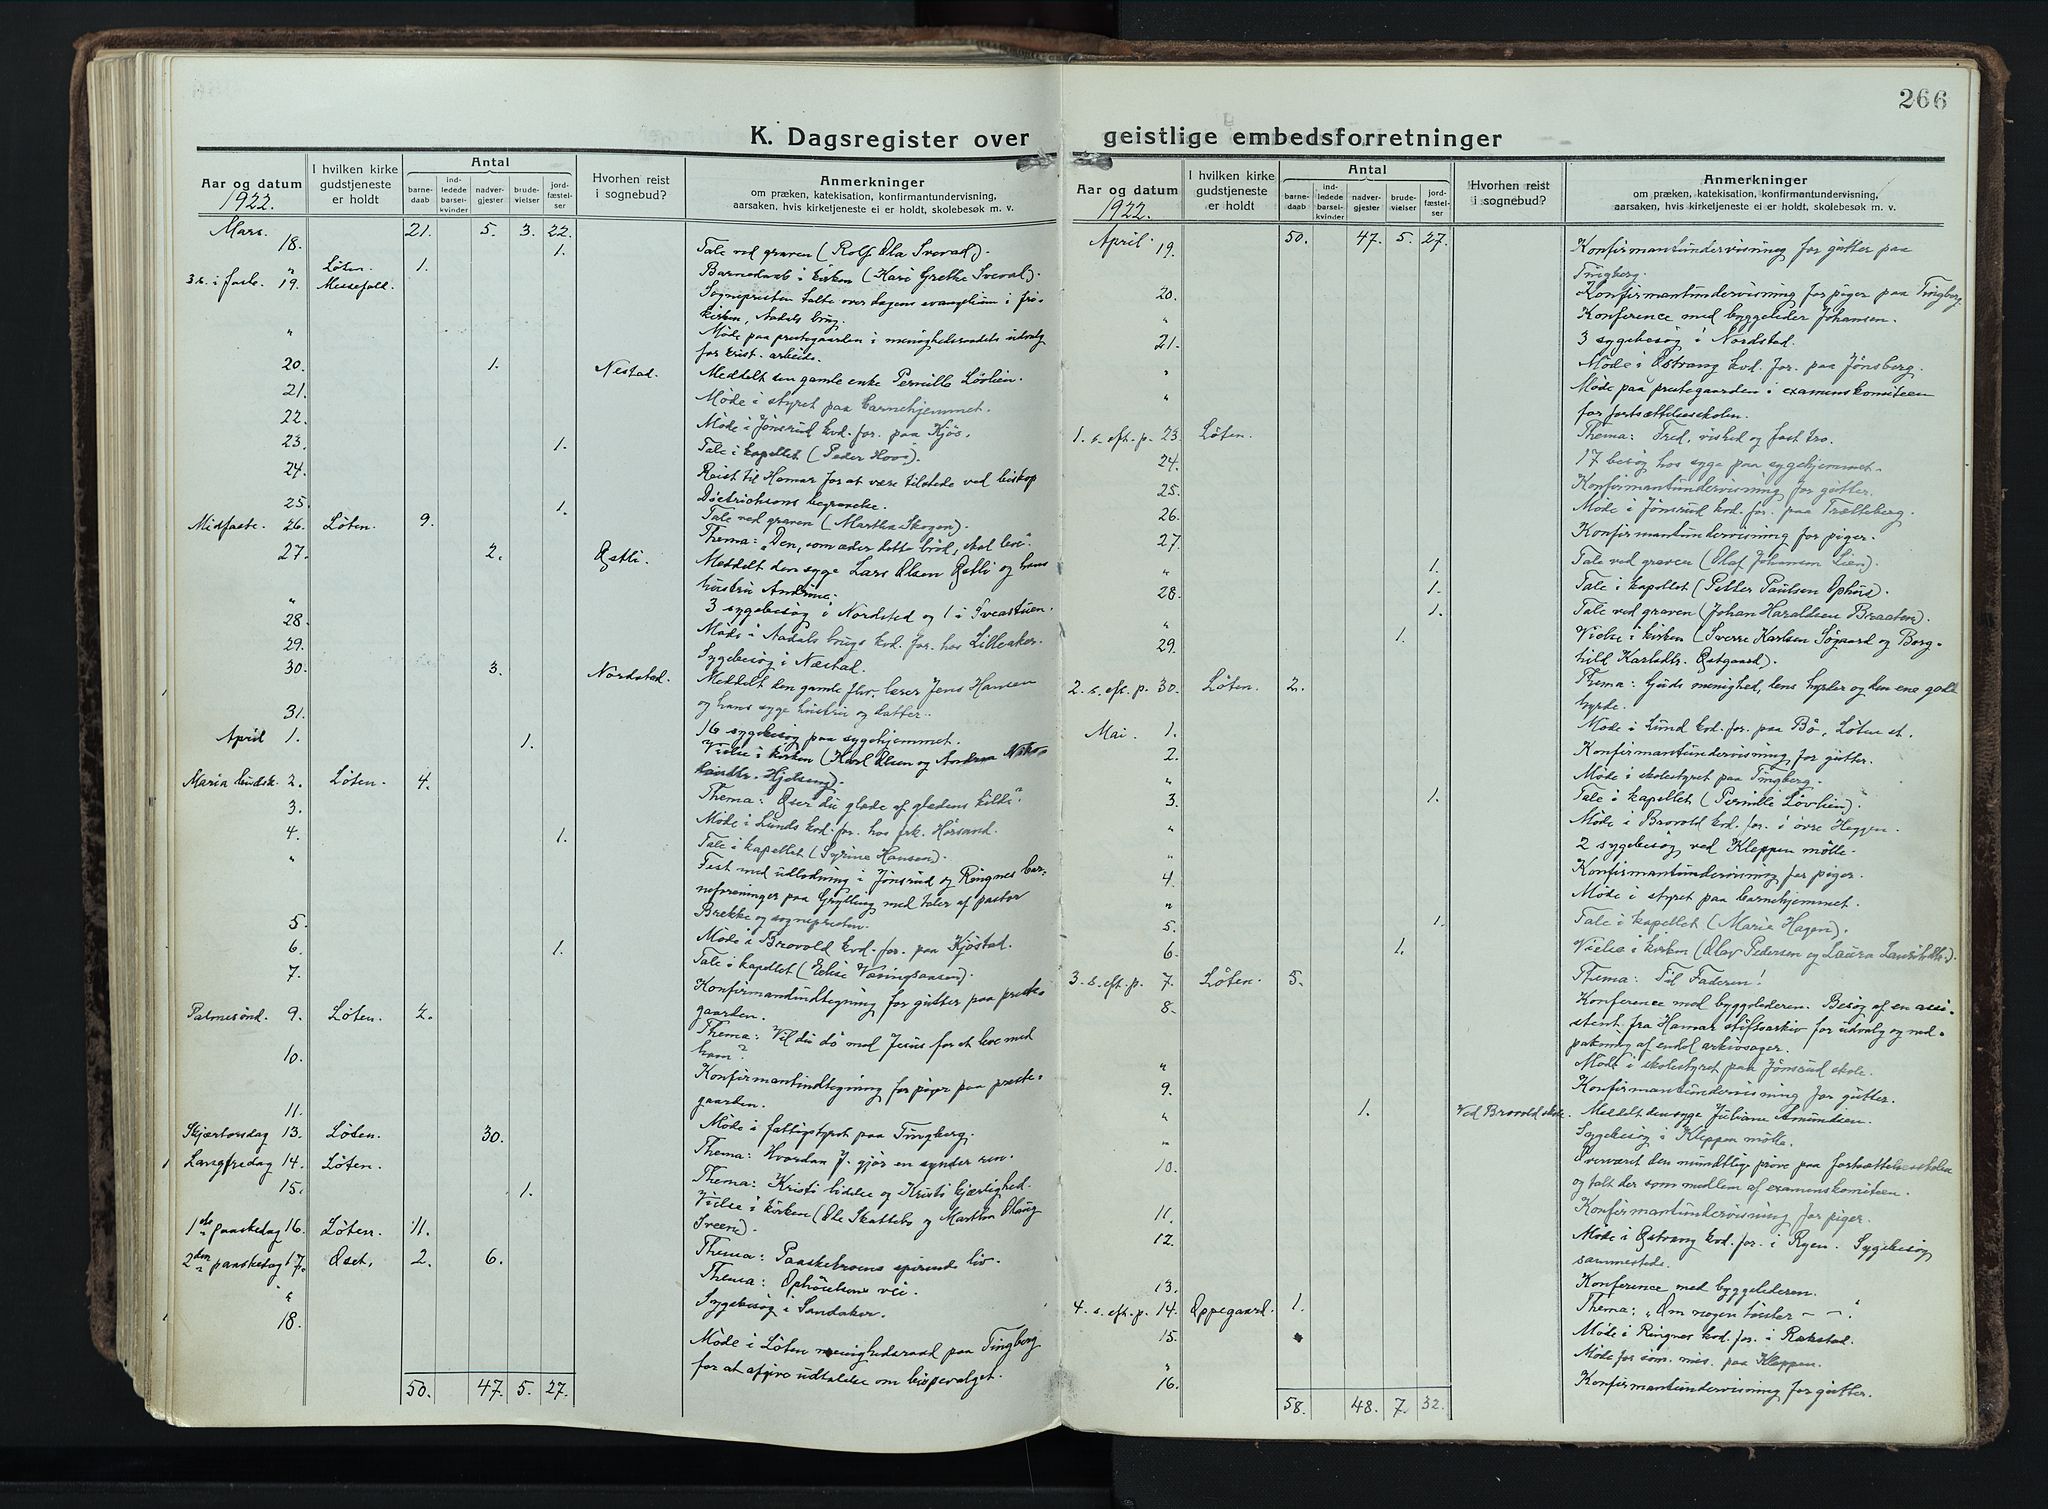 266
K. Dagsregister over geistlige embedsforretninger
Aar og datum
1922.
I hvilken kirke
gudstjeneste
er holdt
Antal
barne-
daab
ind-
ledede
barsel-
kvinder
nadver-
gjester
brude-
vielser
jord-
fæstel-
ser
Hvorhen reist
i sognebud?
Anmerkninger
om præken, katekisation, konfirmantundervisning,
aarsaken, hvis kirketjeneste ei er holdt, skolebesøk m. v.
Mars. 21. 5. 3. 22.
18. 1. Tale ved graven (Rolf Ola Sveval).
" Løten. 1. Barnedaab i kirken (Kari Grethe Sveval).
3 s. i faste. 19. Messefald. Sognepresten talte over dagens evangelium i fri-
kirken, Aadals brug.
" Møde paa prestegaarden i menighedsraadets udvalg
for krist. arbeide.
20. 1. Nestad. Meddelt den gamle enke Pernille Løvlien.
21. Møde i styret paa barnehjemmet.
22. Møde i Jønsrud kvd. for. paa Kjøs.
23. 1. Tale i kapellet (Peder Hoel).
24. Reist til Hamar for at være tilstede ved biskop
Dietrichsons begravelse.
25. 1. Tale ved graven (Martha Skogen).
Midfaste. 26. Løten. 9. Thema: "Den, som æder dette brød, skal leve".
27. 2. Østli. Meddelt den syge Lars Olsen Østli og hans
hustru Andrine.
" 3 sygebesøg i Nordstad og 1 i Sveastuen.
28. Møde i Aadals brugs kvd. for. hos Lilleaker.
29. Sygebesøg i Næstad.
30. 3. Nordstad. Meddelt den gamle fhv. lærer Jens Hansen
og hans syge hustru og datter.
31. 16 sygebesøg paa sygehjemmet.
April 1. 1. Vielse i kirken (Karl Olsen og Andrea
Hjelseng).
Maria budsk. 2. Løten. 4. Thema: "Øser du glæde af glædens kilde".
3. Møde i Lunds kvd. for. hos frk. Hørsand.
4. 1. Tale i kapellet (Syrine Hansen).
" Fest med udlodning i Jønsrud og Ringnes bar-
neforeninger paa Grylling med taler af pastor
Brekke og sognepresten.
5. Møde i Brovold kvd. for. paa Kjøstad.
6. 1. Tale i kapellet (Elise Væringsaasen).
7. Konfirmandindtegning for gutter paa preste-
gaarden.
Palmesønd. 9. Løten. 2. Thema: Vil du dø med Jesus for at leve med
ham?
10. Konfirmantindtegning for piger paa preste-
gaarden.
11. Møde i fattigstyret paa Tingberg.
Skjærtorsdag 13. Løten. 30. Thema: Hvordan J. gjør en synder ren.
Langfredag 14. Løten. Thema: Kristi lidelse og Kristi kjærlighed.
15. 1. Vielse i kirken (Ole Skattebo og Marthea Olaug
Sveen).
1ste paaskedag 16. Løten. 11. Thema: Paasketroens spirende liv.
2den paaskedag 17. Øset. 2. 6. Thema: Ophøielsens vei.
" Sygebesøg i Sandaker.
18. Møde i Løten menighedsraad paa Tingberg
for at afgive udtalelse om bispevalget.
50. 47. 5. 27.
Aar og datum
1922.
I hvilken kirke
gudstjeneste
er holdt
Antal
barne-
daab
ind-
ledede
barsel-
kvinder
nadver-
gjester
brude-
vielser
jord-
fæstel-
ser
Hvorhen reist
i sognebud?
Anmerkninger
om præken, katekisation, konfirmantundervisning,
aarsaken, hvis kirketjeneste ei er holdt, skolebesøk m. v.
April. 50. 47. 5. 27.
19. Konfirmantundervisning for gutter paa
Tingberg.
20. Konfirmantundervisning for piger paa Tingberg.
" Konference med byggeleder Johansen.
21. 3 sygebesøg i Nordstad.
" Møde i Østvang kvd. for. paa Jønsberg.
" Møde paa prestegaarden i examenskomiteen
for fortsættelsesskolen.
1. s. eft. p. 23. Løten. Thema: Fred, vished og fast tro.
24. 17 besøg hos syge paa sygehjemmet.
25. Konfirmantundervisning for gutter.
26. Møde i Jønsrud kvd. for. paa Trætteberg.
27. Konfirmantundervisning for piger.
" 1. Tale ved graven (Olaf Johansen Lien).
28. 1. Tale i kapellet (Petter Paulsen Ophus).
" 1. Tale ved graven (Johan Haraldsen Braaten).
29. 1. Vielse i kirken (Sverre Karlsen Søgaard og Borg-
hild Karlsdtr. Østgaard).
2. s. eft. p. 30. Løten. 2. Thema: Guds menighed, dens hyrder og den ene gode
hyrde.
Mai. 1. Møde i Lund kvd. for. paa Bø, Løten st.
2. Konfirmantundervisning for gutter.
" Møde i skolestyret paa Tingberg.
3. 1. Tale i kapellet (Pernille Løvlien).
" Møde i Brovold kvd. for. i øvre Heggen.
" 2 sygebesøg ved Kleppen mølle.
4. Konfirmantundervisning for piger.
" Møde i styret paa barnehjemmet.
5. 1. Tale i kapellet (Marie Hagen).
6. 1. Vielse i kirken (Olav Pedersen og Laura Lauritsdtr.).
3. s. eft. p. 7. Løten. 5. Thema: Til Faderen!
8. Konference med byggelederen. Besøg af en assi-
stent fra Hamar stiftsarkiv for udvalg og ned-
pakning af endel arkivsager.
" Møde i skolestyret paa Jønsrud skole.
9. Konfirmantundervisning for gutter.
" 1. Ved Brovold skole. Meddelt den syge Juliane Amundsen.
" Sygebesøg i Kleppen mølle.
10. Overværet den mundtlige prøve paa fortsættelsesskolen
og talt der som medlem af examenskomiteen.
11. Konfirmantundervisning for piger.
12. Møde i Østvang kvd. for. i Ryen. Sygebesøg
sammestede.
13. Konference med byggelederen.
4. s. eft. p. 14. Oppegaard. 1. Thema: "Om nogen tørster – –".
15. Møde i Ringnes kvd. for. i Rokstad.
" Møde for søm. mis. paa Kleppen.
16. Konfirmantundervisning for gutter.
58. 48. 7. 32.